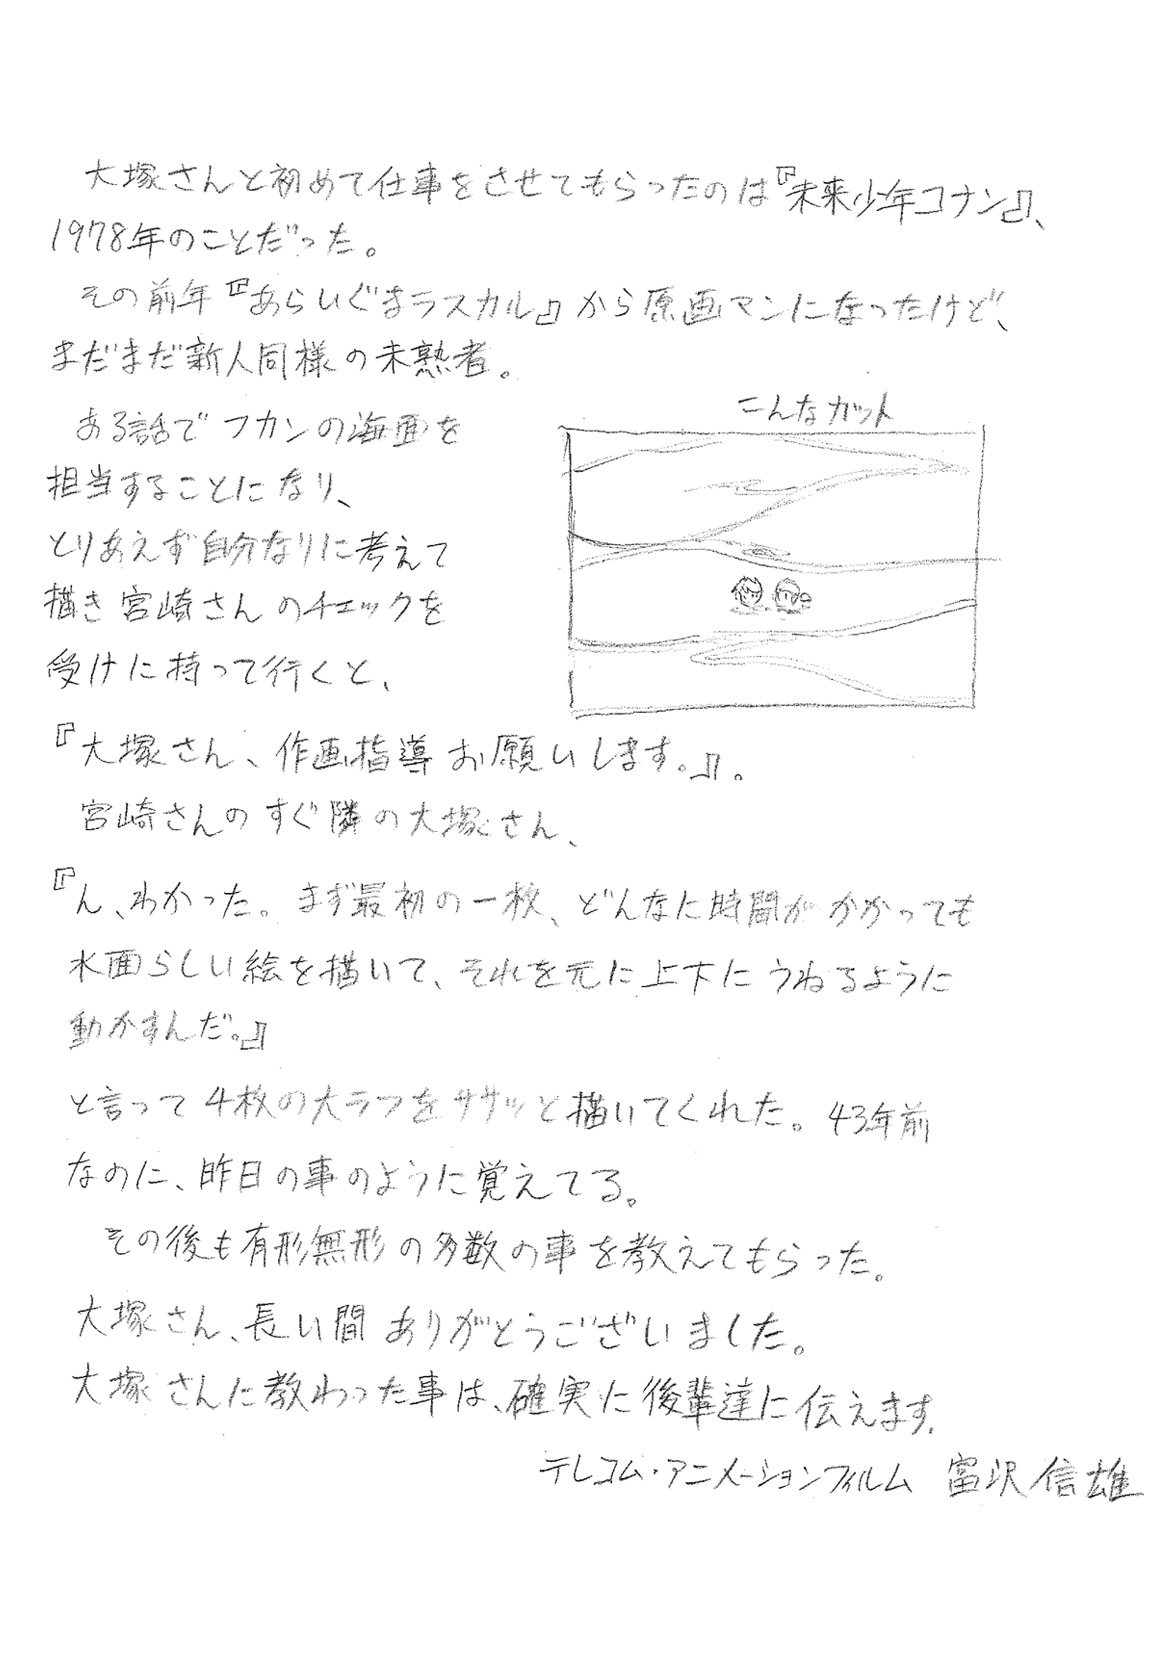 大塚さんと初めて仕事をさせてもらったのは『未来少年コナン』、
1978年のことだった。
その前年『あらいぐまラスカル』から原画マンになったけど、
まだまだ新人同様の未熟者。
こんなカット
ある話でフカンの海面を
担当することになり、
とりあえず自分なりに考えて
描き宮崎さんのチェックを
受けに持って行くと、
『大塚さん、作画指導お願いします。』。
宮崎さんのすぐ隣の大塚さん、
『ん、わかった。まず最初の一枚、どんなに時間がかかっても
水面らしい絵を描いて、それを元に上下にうねるように
動かすんだ。』
と言って4枚の大ラフをササッと描いてくれた。43年前
なのに、昨日の事のように覚えてる。
その後も有形無形の多数の事を教えてもらった。
大塚さん、長い間ありがとうございました。
大塚さんに教わった事は、確実に後輩達に伝えます.
テレコム・アニメーションフィルム 富沢信雄